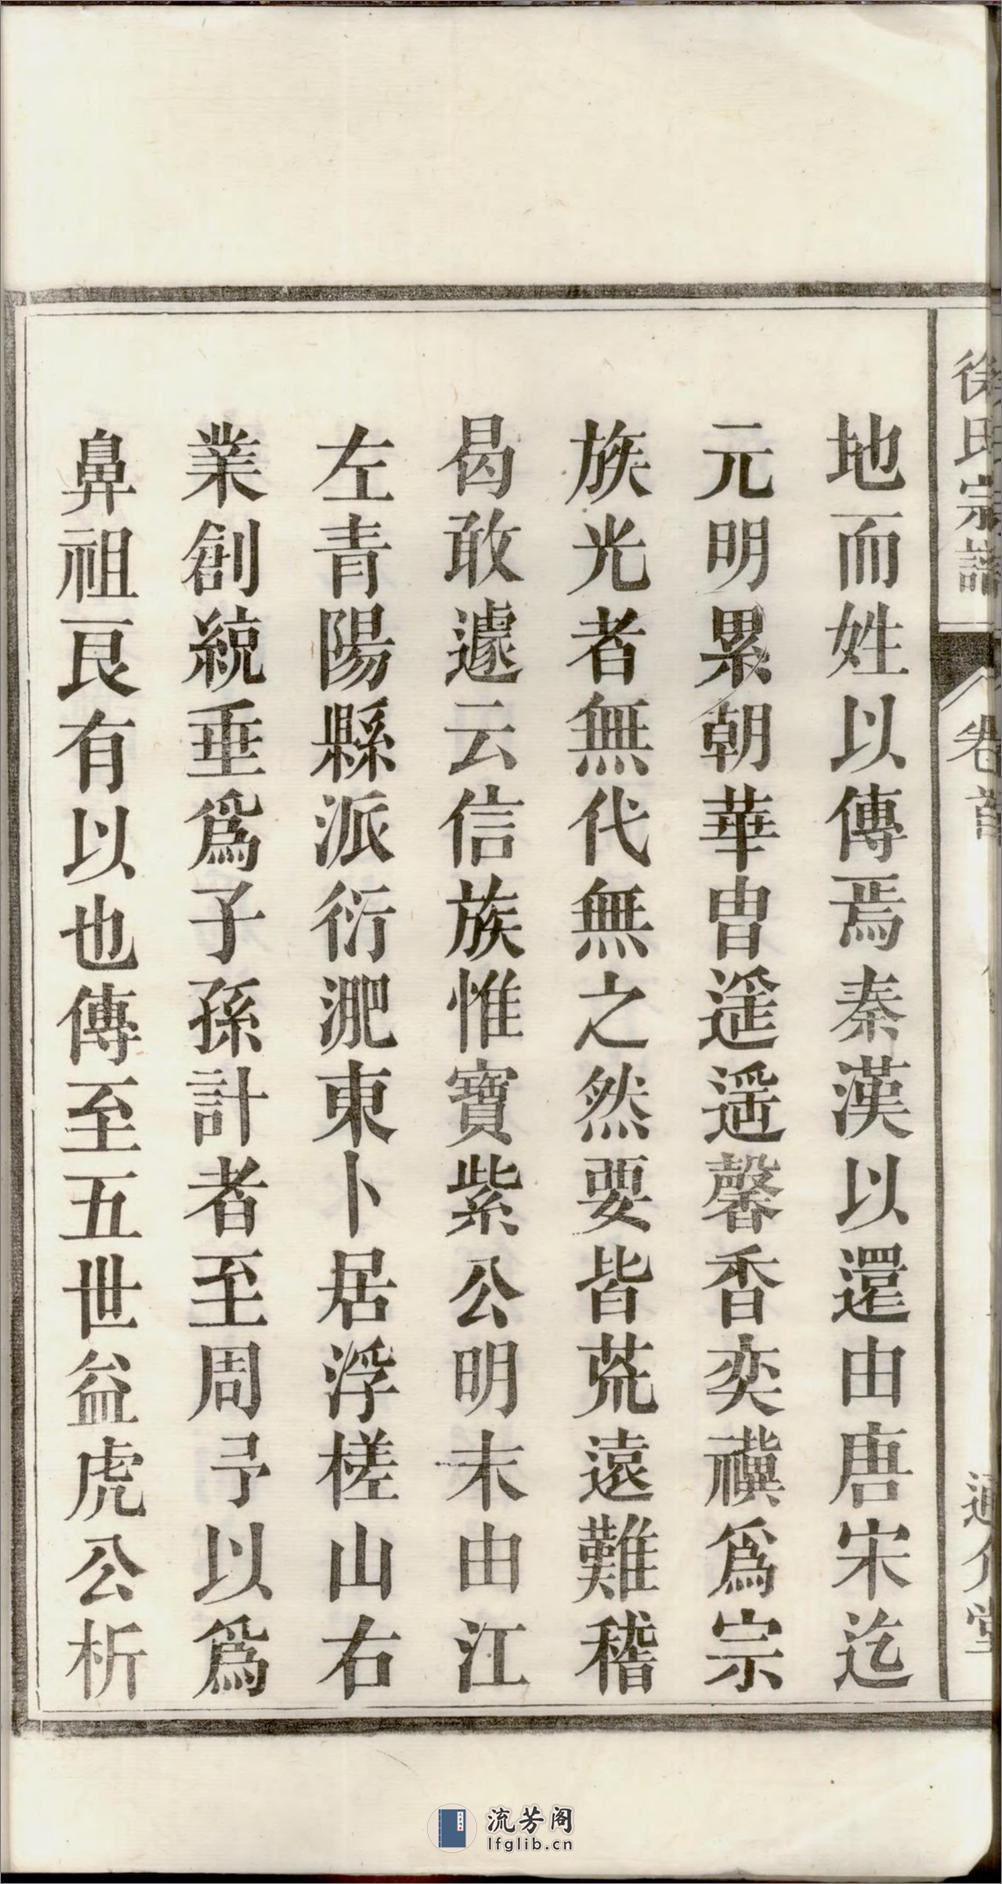 地而姓以傳焉秦漢以還由唐宋迄
元明累朝華冑遥遥馨香奕禩爲宗
族光者無代無之然要皆荒遠難稽
曷敢遽云信族惟寶紫公明末由江
左青陽縣派衍淝東卜居浮槎山右
業創統垂爲子孫計者至周予以爲
鼻祖艮有以也傳至五世益虎公析
徐氏宗譜
卷首
通介堂
流芳阁
lfglib.cn